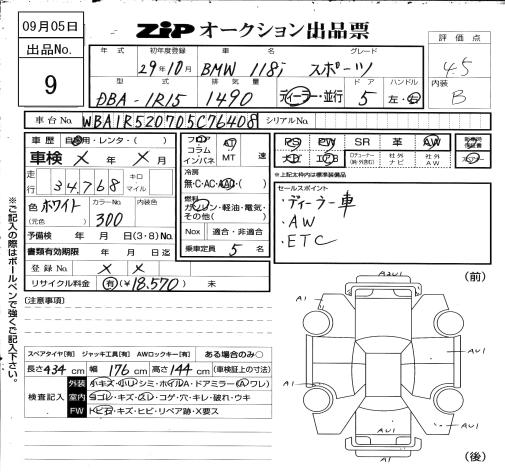 09月05日
ZIP オークション出品票
出品No.
9
評価点
4.5
内装
B
年式 初年度登録 車名 グレード
29年10月 BMW 118i スポーツ
型式 排気量 ドア ハンドル
DBA-1R15 1490 ディーラー・並行 5 左・右
車台No. WBA1R520705C76408 シリアルNo.
車歴 自家用・レンタ・( )
車検 X 年 X 月
走行 34,768 キロ マイル
色 ホワイト カラーNo. 300 内装色
(元色 )
予備検 年 月 日(3・8)No.
書類有効期限 年 月 日迄
登録No. X X
リサイクル料金 有(¥18,570) 未
フロア コラム インパネ AT MT 速
冷房
無・C・AC・AAC・( )
燃料
ガソリン・軽油・電気・その他( )
Nox 適合・非適合
乗車定員 5 名
PS PW SR 革 AW
エアB 社外ナビ 社外AW
※上記太枠内は標準装備品
セールスポイント
・ディーラー車
・AW
・ETC
(注意事項)
※ご記入の際はボールペンで強くご記入下さい。
スペアタイヤ[有] ジャッキ工具[有] AWロックキー[有] ある場合のみ○
長さ 434 cm 幅 176 cm 高さ 144 cm (車検証上の寸法)
検査記入
外装 小キズ・小U・シミ・ホイルA・ドアミラー(A・ワレ)
室内 ヨゴレ・キズ・スレ・コゲ・穴・キレ・破れ・ウキ
FW トビ石・キズ・ヒビ・リペア跡・X要ス
(前)
A2U1
A1
AU1
A1
AU1
AU1
(後)